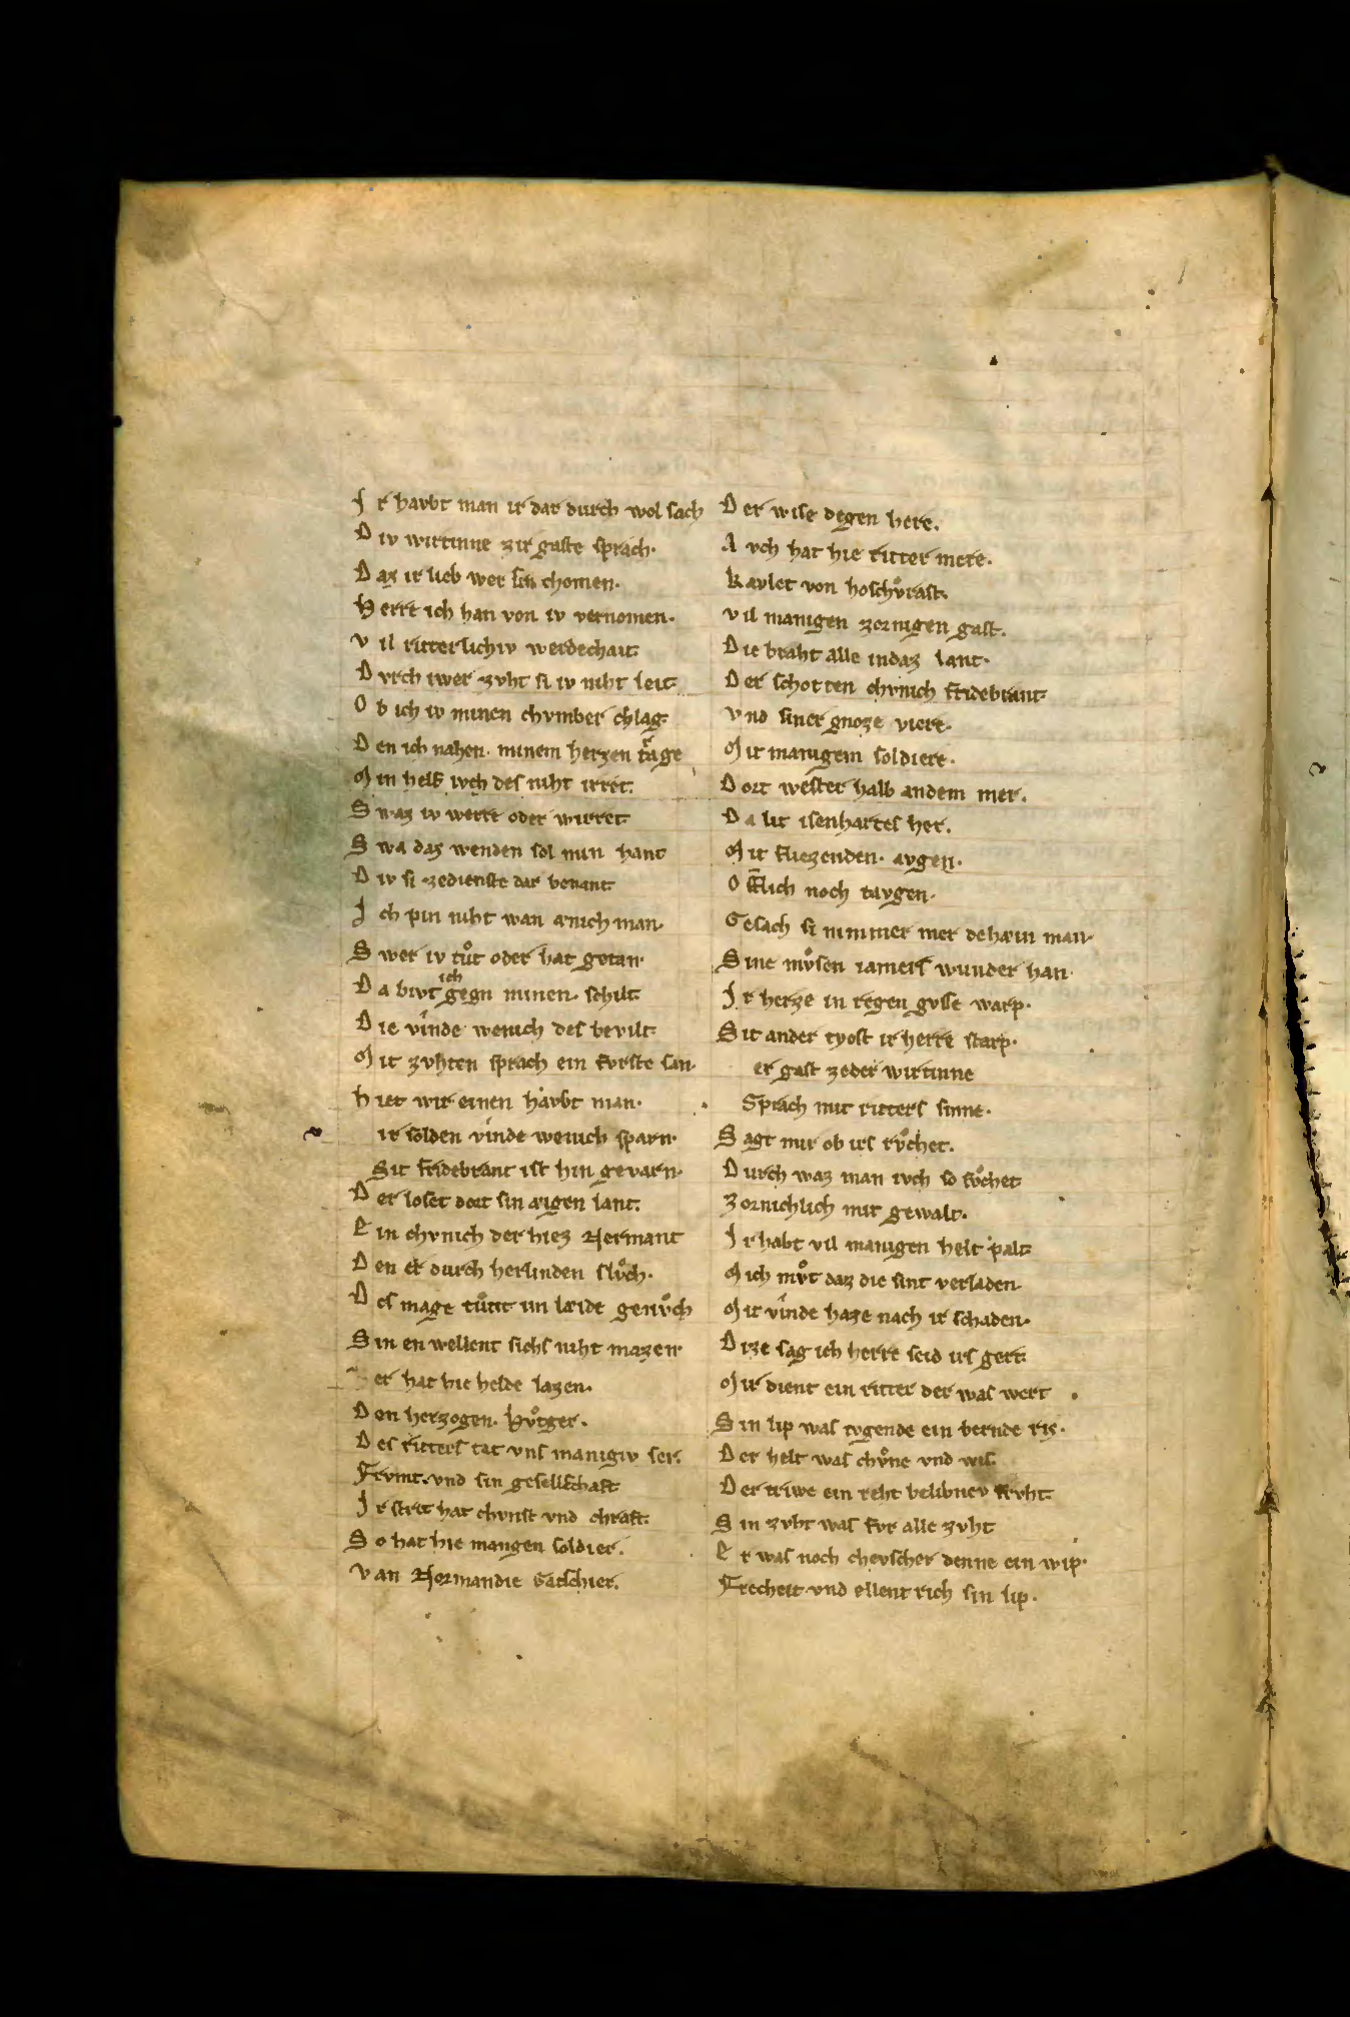 J r havbt man ir dar durch wol sach
D iv wirtinne zir gaste sprach·
D az ir lieb wer sin chomen·
H erre ich han von iv vernomen·
V il ritterlichiv werdechait·
D vrch iwer zvht si iv niht leit·
O b ich iv minen chvmber chlag·
D en ich nahen· minem herzen trage
M in helf iveh des niht irret·
S waz iv werre oder wirret
S wa daz wenden sol min hant
D iv si zedienste dar benant·
J ch pin niht wan æinich man·
S wer iv tůt oder hat getan·
D a bivt ich gegn minen· schilt·
D ie vinde wenich des bevilt·
M it zvhten sprach ein fvrste san·
H iet wir einen havbt man·
ir solden vinde wenich sparn·
Sit fridebrant ist hin gevarn·
D er loset dort sin æigen lant·
E in chvnich der hiez Hermant
D en er durch herlinden slvͦch·
D es mage tůnt im læide genvͦch
S in en wellent sichs niht mazen·
er hat hie helde lazen·
D en herzogen· hvͦtger·
D es ritters tat vns manigiv ser·
Frvmt· vnd sin gesellschaft
J r strit hat chvnst vnd chraft·
S o hat hie mangen soldier·
V an Normandie Gatschier·
D er wise degen here·
A vch hat hie ritter mere·
K aylet von hoschvͦrast·
V il manigen zornigen gast·
D ie braht alle indaz lant·
D er schotten chvnich fridebrant·
V nd siner gnoze viere·
M it manigem soldiere·
D ort wester halb andem mer·
D a lit isenhartes her·
M it fliezenden· avgen·
O fflich noch tavgen·
Gesach si nimmer mer dehæin man·
S ine mvͦsen iamers wunder han·
J r herze in regen gvsse warp·
S it ander tyost ir herre starp·
er gast zeder wirtinne
Sprach mit ritters sinne·
S agt mir ob irs rvͦchet·
D urch waz man ivch so sůchet
Z ornichlich mit gewalt·
J r habt vil manigen helt palt·
M ich mvͦt daz die sint verladen·
M it vinde haze nach ir schaden·
D ize sag ich herre seid irs gert·
M ir dient ein ritter der was wert
S in lip was tvgende ein bernde ris·
D er helt was chvͦne vnd wis·
D er triwe ein reht belibnev frvht·
S in zvht was fvr alle zvht
E r was noch chevscher denne ein wip·
Frecheit vnd ellent rich sin lip·